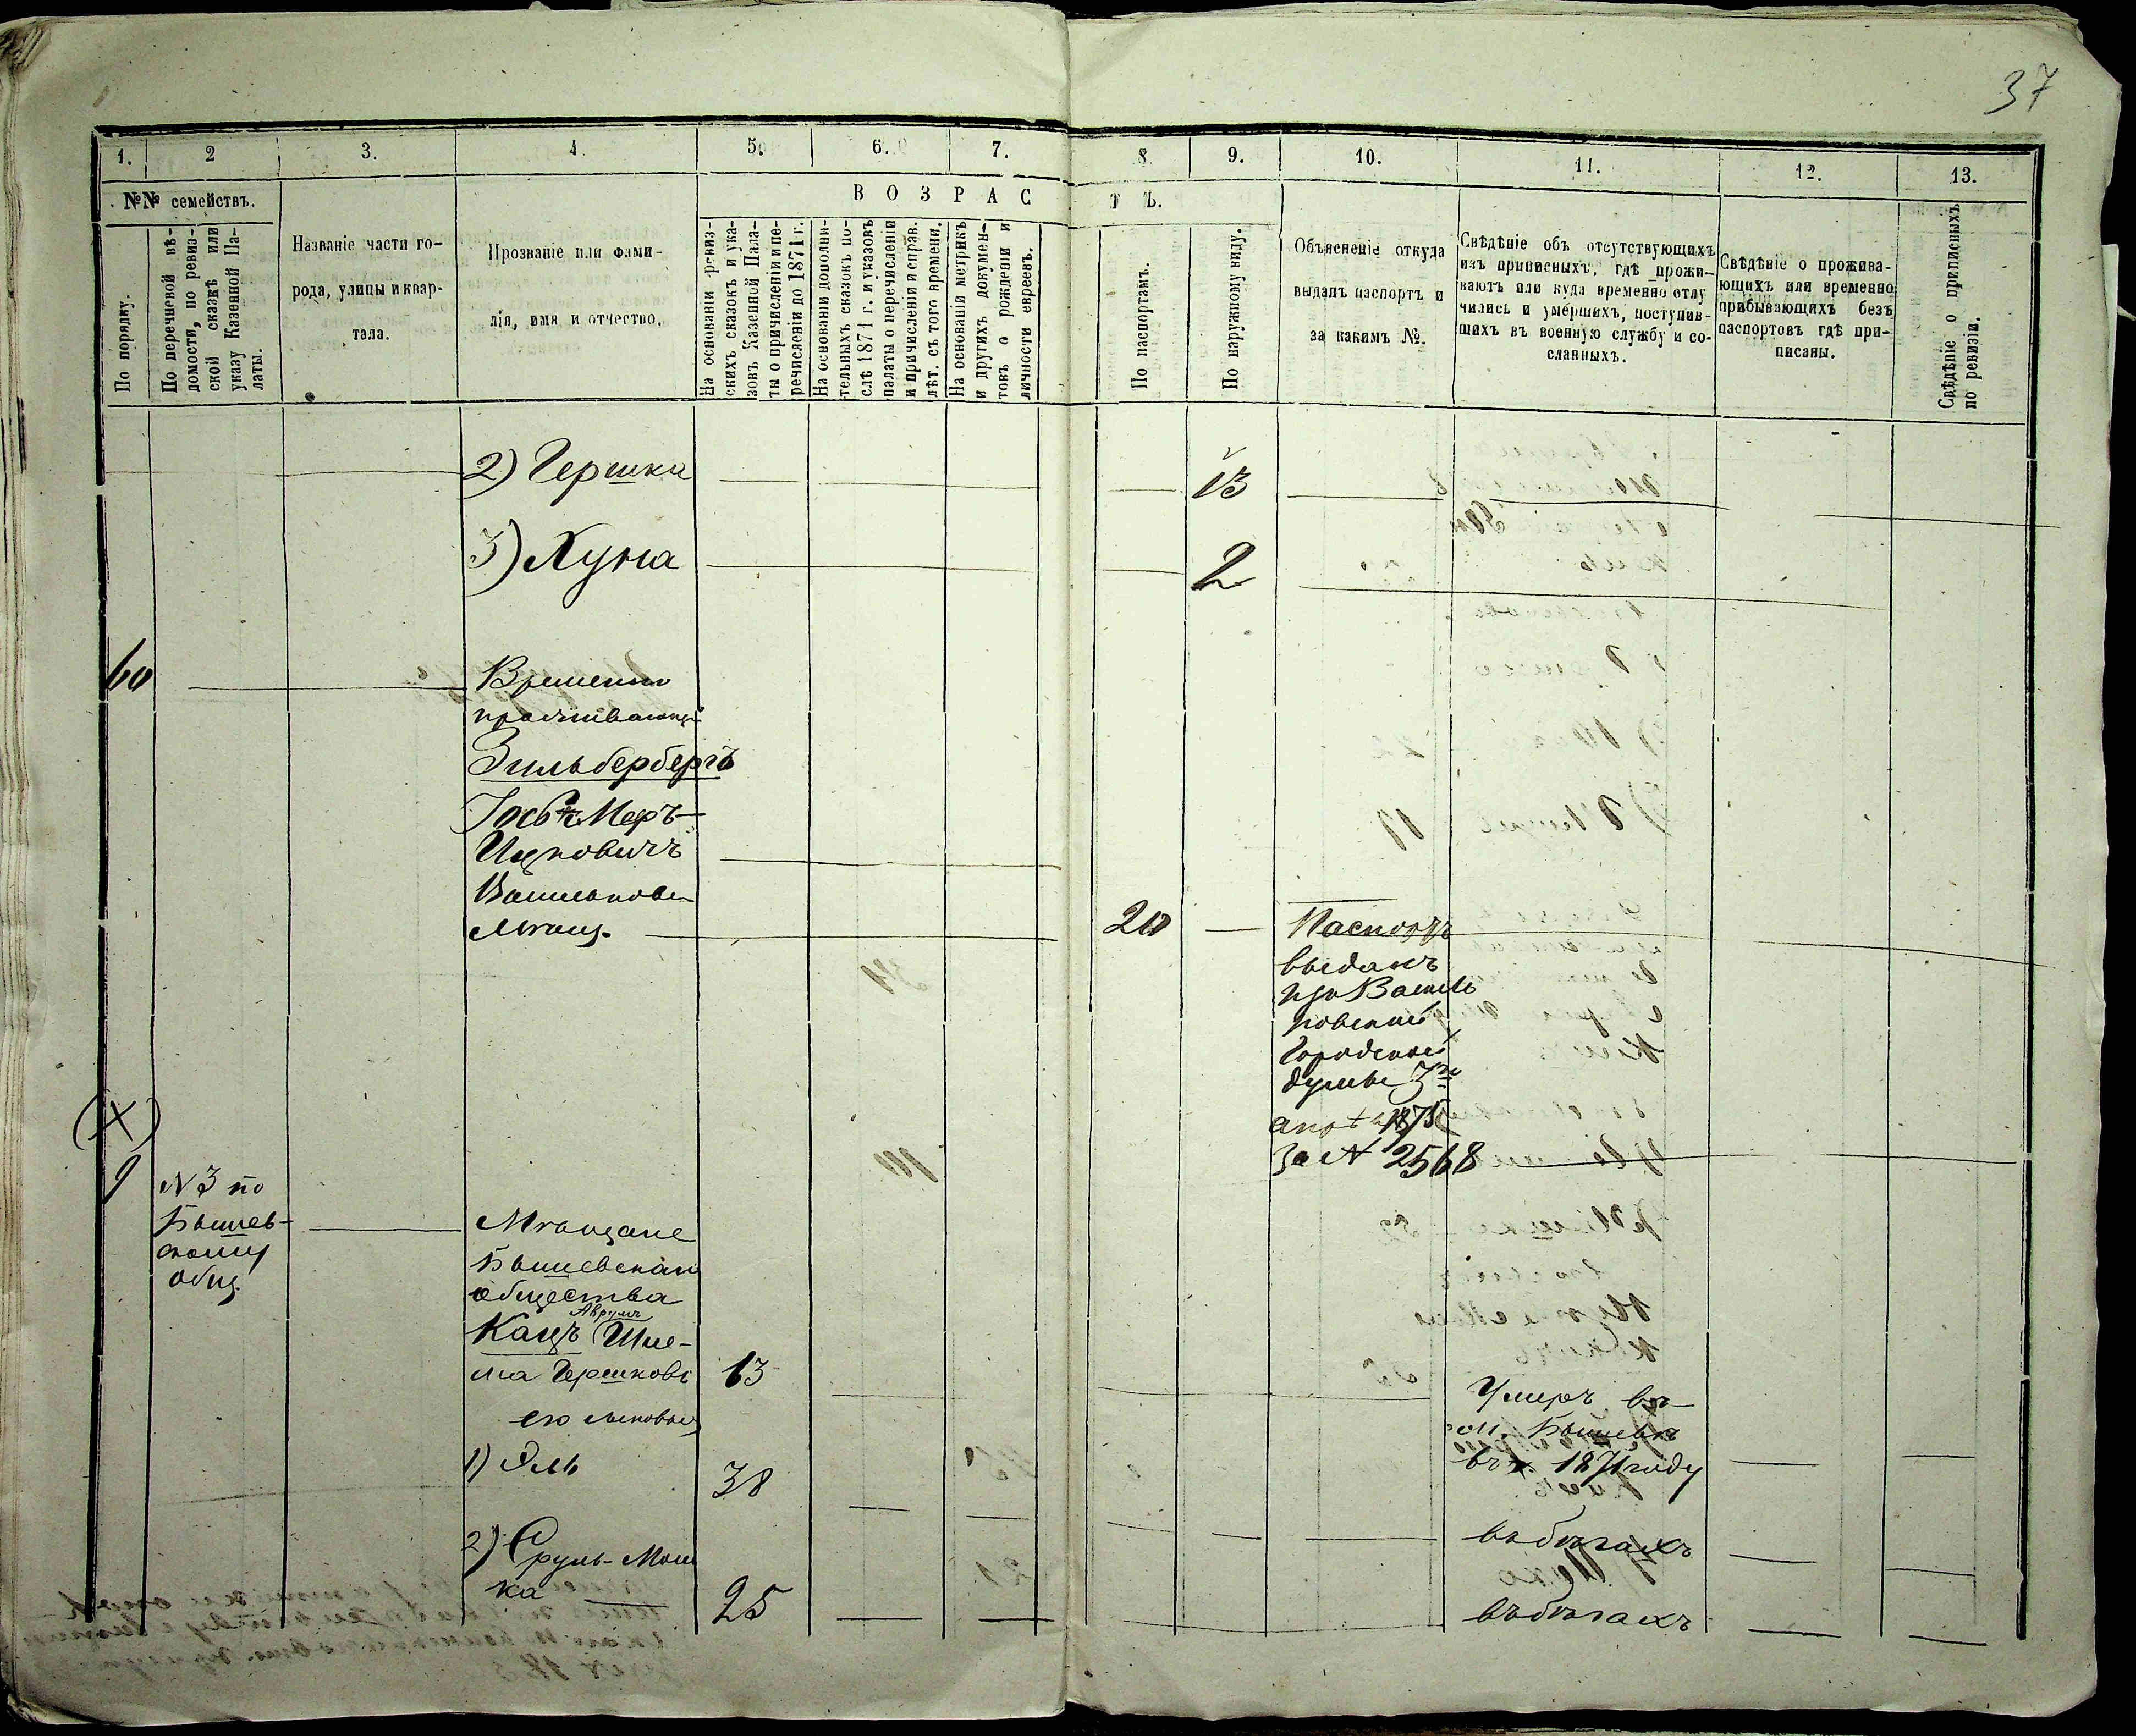 37
1. 2 3. 4. 5. 6. 7. 8. 9. 10. 11. 12. 13.
№№ семействъ.
По порядку.
По перечневой вѣ-
домости, по ревиз-
ской сказкѣ или
указу Казенной Па-
латы.
Названіе части го-
рода, улицы и квар-
тала.
Прозваніе или фами-
лія, имя и отчество.
ВОЗРАСТЪ.
На основаніи ревиз-
скихъ сказокъ и ука-
зовъ Казенной Пала-
ты о причисленіи и пе-
речисленіи до 1871 г.
На основаніи дополни-
тельныхъ сказокъ по-
слѣ 1871 г. и указовъ
палаты о перечисленіи
и причисленіи и справ.
лѣт. съ того времени.
На основаніи метрикъ
и другихъ докумен-
товъ о рожденіи и
личности евреевъ.
По паспортамъ.
По наружному виду.
Объясненіе откуда
выданъ паспортъ и
за какимъ №.
Свѣдѣніе объ отсутствующихъ
изъ приписныхъ, гдѣ прожи-
ваютъ или куда временно отлу
чились и умершихъ, поступив-
шихъ въ военную службу и со-
сланныхъ.
Свѣдѣніе о прожива-
ющихъ или временно
прибывающихъ безъ
паспортовъ гдѣ при-
писаны.
Свѣдѣніе о приписныхъ
по ревизіи.
2) Гершка 13
3) Хуна 2
60 Временно
проживающ
Зильбербергъ
Меръ-
Ицковичъ
Васильков
Мѣщ. 20 Паспортъ
выданъ
изъ Василь
ковской
Городской
думы 3го
апр 1875
за № 2568
(X)
9 № 3 по
Бышев-
скому
общ.
Мѣщане
Бышевскаго
общества
Аврумъ
Кацъ Шле-
ма Гершковъ 63
Умеръ въ
м. Бышевѣ
въ 1871 году
его сыновья
1) Эль 38 въ бѣгахъ
2) Сруль-Мош
ка 25 въ бѣгахъ